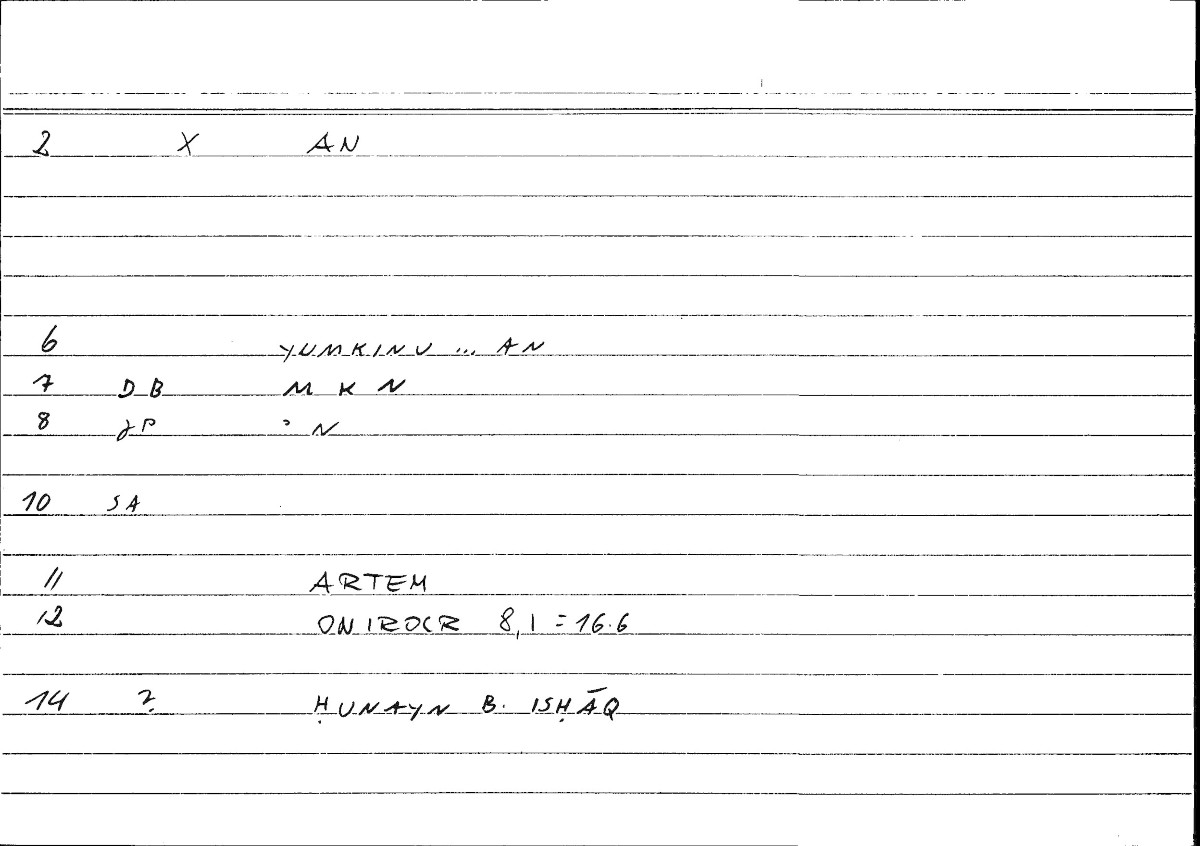 2 X AN
6 YUMKINU ... AN
7 DB M K N
8 JP ʾ N
10 SA
11 ARTEM
12 ONIROCR 8,1 = 16.6
14 ? ḤUNAYN B. ISḤĀQ